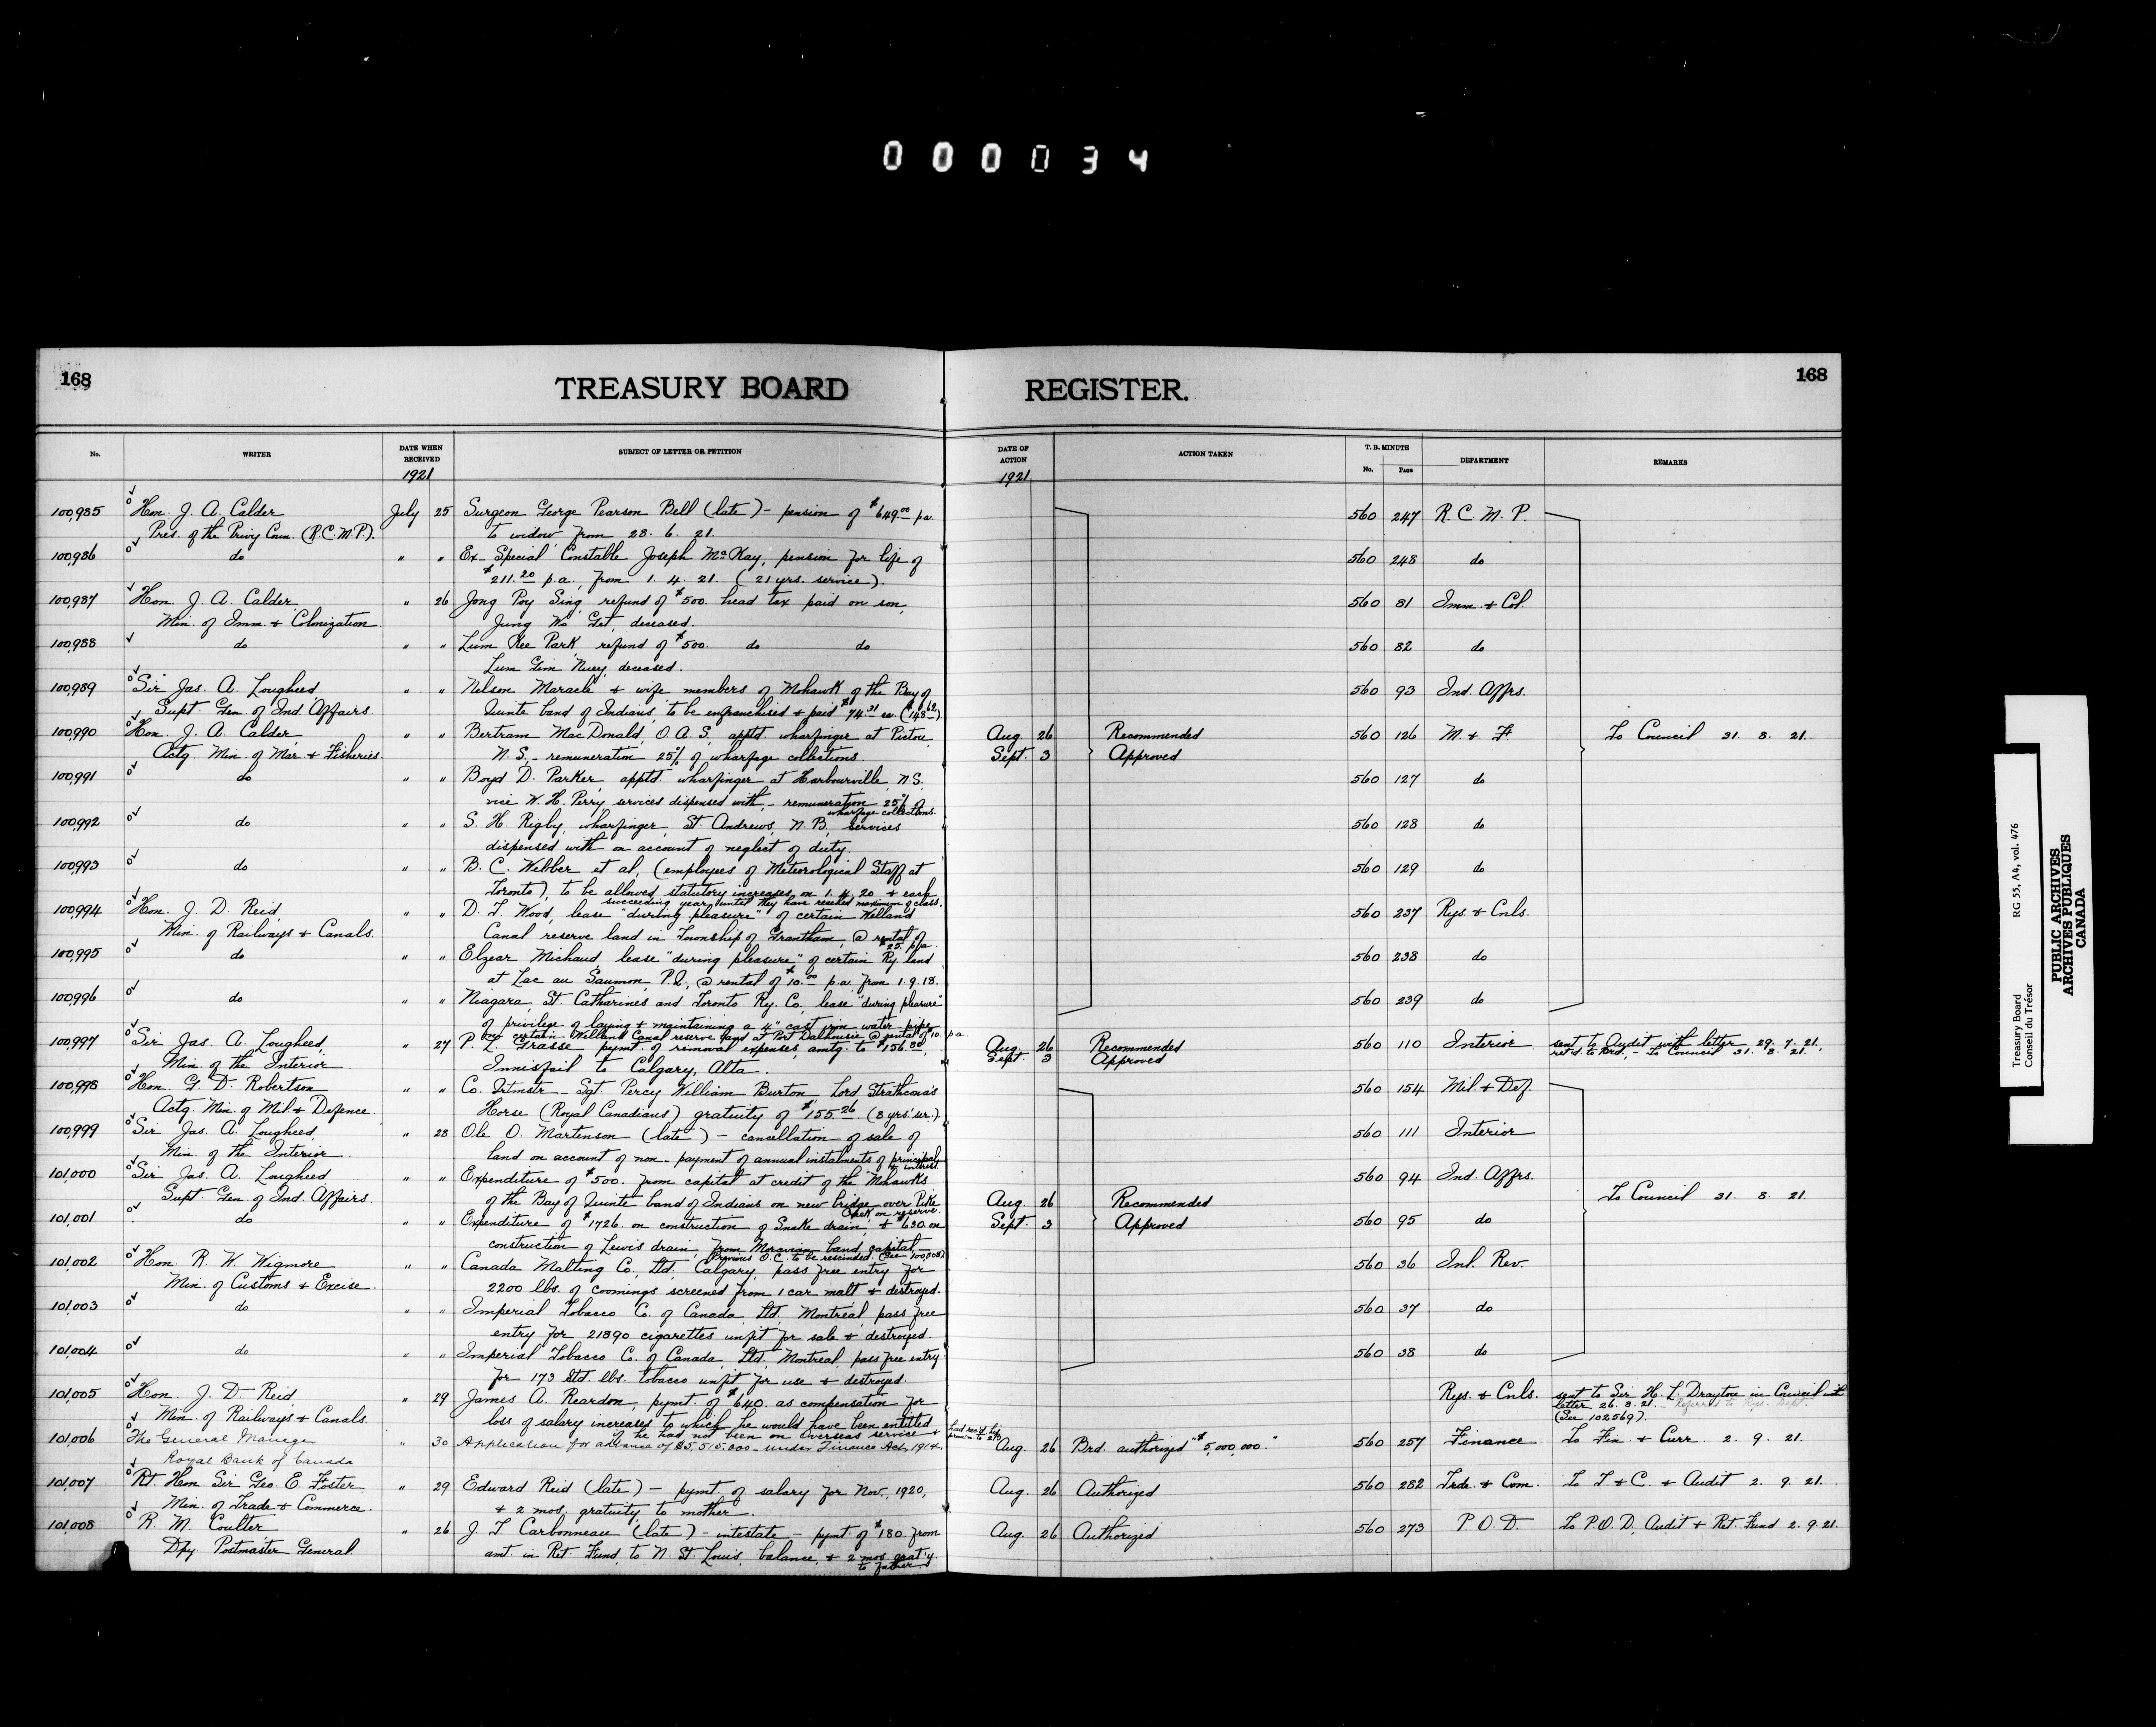 000034
168 TREASURY BOARD REGISTER. 168
No. WRITER DATE WHEN RECEIVED SUBJECT OF LETTER OR PETITION DATE OF ACTION ACTION TAKEN T.B. MINUTE No. PAGE DEPARTMENT REMARKS
1921 1921
100,985 Hon. J. A. Calder July 25 Surgeon George Pearson Bell (late) - pension of $649.00 pa. 560 247 R.C.M.P.
Pres. of the Privy Coun. (R.C.M.P.) to widow from 28. 6. 21.
100,986 do " " Ex-Special Constable Joseph McKay, pension for life of 560 248 do
$211.20 p.a., from 1. 4. 21. (21 yrs. service).
100,987 Hon. J. A. Calder " 26 Jong Poy Sing, refund of $500. head tax paid on son, 560 81 Imm. & Col.
Min. of Imm. & Colonization Jung Wo Get, deceased.
100,988 do " " Lum Kee Park, refund of $500. do do 560 82 do
Lum Gim Nuey, deceased.
100,989 Sir Jas. A. Lougheed, " " Nelson Maracle & wife members of Mohawk of the Bay of 560 93 Ind. Affrs.
Supt. Gen. of Ind. Affairs. Quinte band of Indians, to be enfranchised & paid $74.31 ea. ($148.62)
100,990 Hon. J. A. Calder, " " Bertram MacDonald, O.A.S., apptd. wharfinger at Pictou, Aug. 26 Recommended 560 126 M. & F. To Council 31. 8. 21.
Actg. Min. of Mar. & Fisheries. N.S. - remuneration 25% of wharfage collections. Sept. 3 Approved
100,991 do " " Boyd D. Parker, apptd. wharfinger at Harbourville, N.S. 560 127 do
vice W. H. Perry, services dispensed with, - remuneration 25% of
wharfage collections.
100,992 do " " S. H. Rigby, wharfinger, St. Andrews, N.B., services 560 128 do
dispensed with on account of neglect of duty.
100,993 do " " B. C. Webber et al, (employees of Meteorological Staff at 560 129 do
Toronto), to be allowed statutory increases, on 1.4.20 & each
succeeding year, until they have reached maximum of class.
100,994 Hon. J. D. Reid, " " D. T. Wood, lease "during pleasure" of certain Welland 560 237 Rys. & Cnls.
Min. of Railways & Canals. Canal reserve land in Township of Grantham, @ rental of
$25. p.a.
100,995 do " " Elzear Michaud lease "during pleasure" of certain Ry. land 560 238 do
at Lac au Saumon, P.Q., @ rental of $10.00 p.a. from 1.9.18.
100,996 do " " Niagara, St. Catharines and Toronto Ry. Co., lease "during pleasure" 560 239 do
of privilege of laying & maintaining a 4" cast iron water-pipe
certain Welland Canal reserve land at Port Dalhousie @ rental of $10. p.a.
100,997 Sir Jas. A. Lougheed, " 27 P. L. Grasse - paymt. of removal expenses, amtg. to $156.80, Aug. 26 Recommended 560 110 Interior sent to Audit with letter 29. 7. 21,
Min. of the Interior. Innisfail to Calgary, Alta. Sept. 3 Approved ret'd. to Brd., - To Council 31. 8. 21.
100,998 Hon. G. D. Robertson " " Co. Qrtmstr.-Sgt. Percy William Burton, Lord Strathcona's 560 154 Mil. & Def.
Actg. Min. of Mil. & Defence. Horse (Royal Canadians) gratuity of $155.26 (8 yrs.' ser.).
100,999 Sir Jas. A. Lougheed, " 28 Ole O. Martinson (late) - cancellation of sale of 560 111 Interior
Min. of the Interior. land on account of non-payment of annual instalments of principal
& interest.
101,000 Sir Jas. A. Lougheed, " " Expenditure of $500. from capital at credit of the Mohawks 560 94 Ind. Affrs.
Supt. Gen. of Ind. Affairs. of the Bay of Quinte band of Indians on new bridge over Pike Aug. 26 Recommended To Council 31. 8. 21.
Creek on reserve.
101,001 do " " Expenditure of $1726. on construction of Snake drain, & $630. on Sept. 3 Approved 560 95 do
construction of Lewis drain, from Moravian band capital.
(Previous O.C. to be rescinded.
101,002 Hon. R. W. Wigmore " " Canada Malting Co., Ltd., Calgary, pass free entry for 560 36 Inl. Rev.
Min. of Customs & Excise. 2200 lbs. of coomings screened from 1 car malt & destroyed.
101,003 do " " Imperial Tobacco Co. of Canada, Ltd. Montreal, pass free 560 37 do
entry for 21890 cigarettes unfit for sale & destroyed.
101,004 do " " Imperial Tobacco Co. of Canada, Ltd., Montreal, pass free entry 560 38 do
for 173 Std. lbs. tobacco unfit for use & destroyed.
101,005 Hon. J. D. Reid, " 29 James A. Reardon, pymt. of $640. as compensation for Rys. & Cnls. sent to Sir H. L. Drayton in Council with
Min. of Railways & Canals. loss of salary increases to which he would have been entitled letter 26. 8. 21. - Referred to Rys. Dept.
if he had not been on Overseas service & (See 102569).
101,006 The General Manager " 30 Application for advance of $5,515,000 - under Finance Act, 1914. Aug. 26 Brd. authorized "$5,000,000." 560 257 Finance To Fin. & Curr. 2. 9. 21.
Royal Bank of Canada
101,007 Rt. Hon. Sir Geo. E. Foster " 29 Edward Reid (late) - pymt. of salary for Nov., 1920, Aug. 26 Authorized 560 282 Trde. & Com. To T. & C. & Audit 2. 9. 21.
Min. of Trade & Commerce. & 2 mos. gratuity to mother.
101,008 R. M. Coulter, " 26 J. T. Carbonneau (late) - intestate - pymt. of $180. from Aug. 26 Authorized 560 273 P.O.D. To P.O.D., Audit & Ret. Fund 2. 9. 21.
Dpy. Postmaster General. amt. in Ret. Fund, to N. St. Louis, balance, & 2 mos. grat'y.
to father.
Treasury Board RG 55, A4, vol. 476
Conseil du Trésor
PUBLIC ARCHIVES
ARCHIVES PUBLIQUES
CANADA